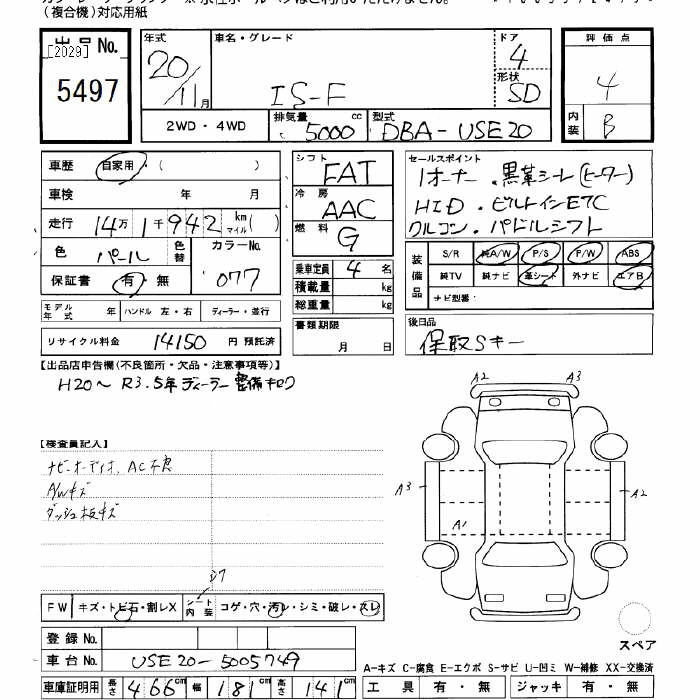 (複合機)対応用紙
出品No.
[2029]
5497
年式 20/11月
車名・グレード IS-F
ドア 4
形状 SD
評価点 4
内装 B
2WD・4WD
排気量 5000 cc
型式 DBA-USE20
車歴 自家用・( )
車検 年 月
走行 14万1千942 km マイル( )
色 パール 色替 カラーNo. 077
保証書 有・無
シフト FAT
冷房 AAC
燃料 G
乗車定員 4 名
積載量 kg
総重量 kg
セールスポイント
1オーナー・黒革シート(ヒーター)
HID・ビルトインETC
クルコン・パドルシフト
装備品 S/R 純A/W P/S P/W ABS
純TV 純ナビ 革シート 外ナビ エアB
ナビ型番:
モデル年式 年 ハンドル 左・右 ディーラー・並行
書類期限 月 日
後日品
保取Sキー
リサイクル料金 14150 円 預託済
【出品店申告欄(不良箇所・欠品・注意事項等)】
H20〜R3.5年ディーラー整備キロク
A2 A3
【検査員記入】
ナビオーディオ、AC不良
A/Wキズ
ダッシュ板キズ
A3 A2
A1
FW キズ・トビ石・割レX シート内装 コゲ・穴・汚レ・シミ・破レ・スレ
登録No.
スペア
車台No. USE20-5005749
A-キズ C-腐食 E-エクボ S-サビ U-凹ミ W-補修 XX-交換済
車庫証明用 長さ 466cm 幅 181cm 高さ 141cm
工具 有・無 ジャッキ 有・無